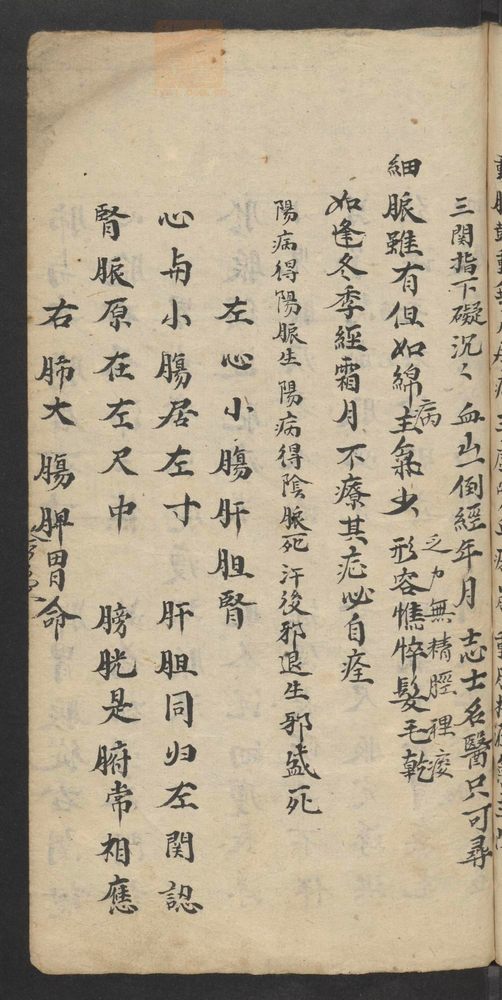 三関指下礙沉〻 血山倒經年月 志士名醫只可尋
細脈雖有但如綿 主病氣少 乏力無精脛裡痠 形容憔悴髮毛乾
如逢冬季經霜月 不療其疾必自痊
陽病得陽脈生 陽病得陰脈死 汗後邪退生 邪盛死
左心小腸肝胆腎
心与小腸居左寸 肝胆同归左関認
腎脈原在左尺中 膀胱是腑常相應
右肺大腸脾胃命